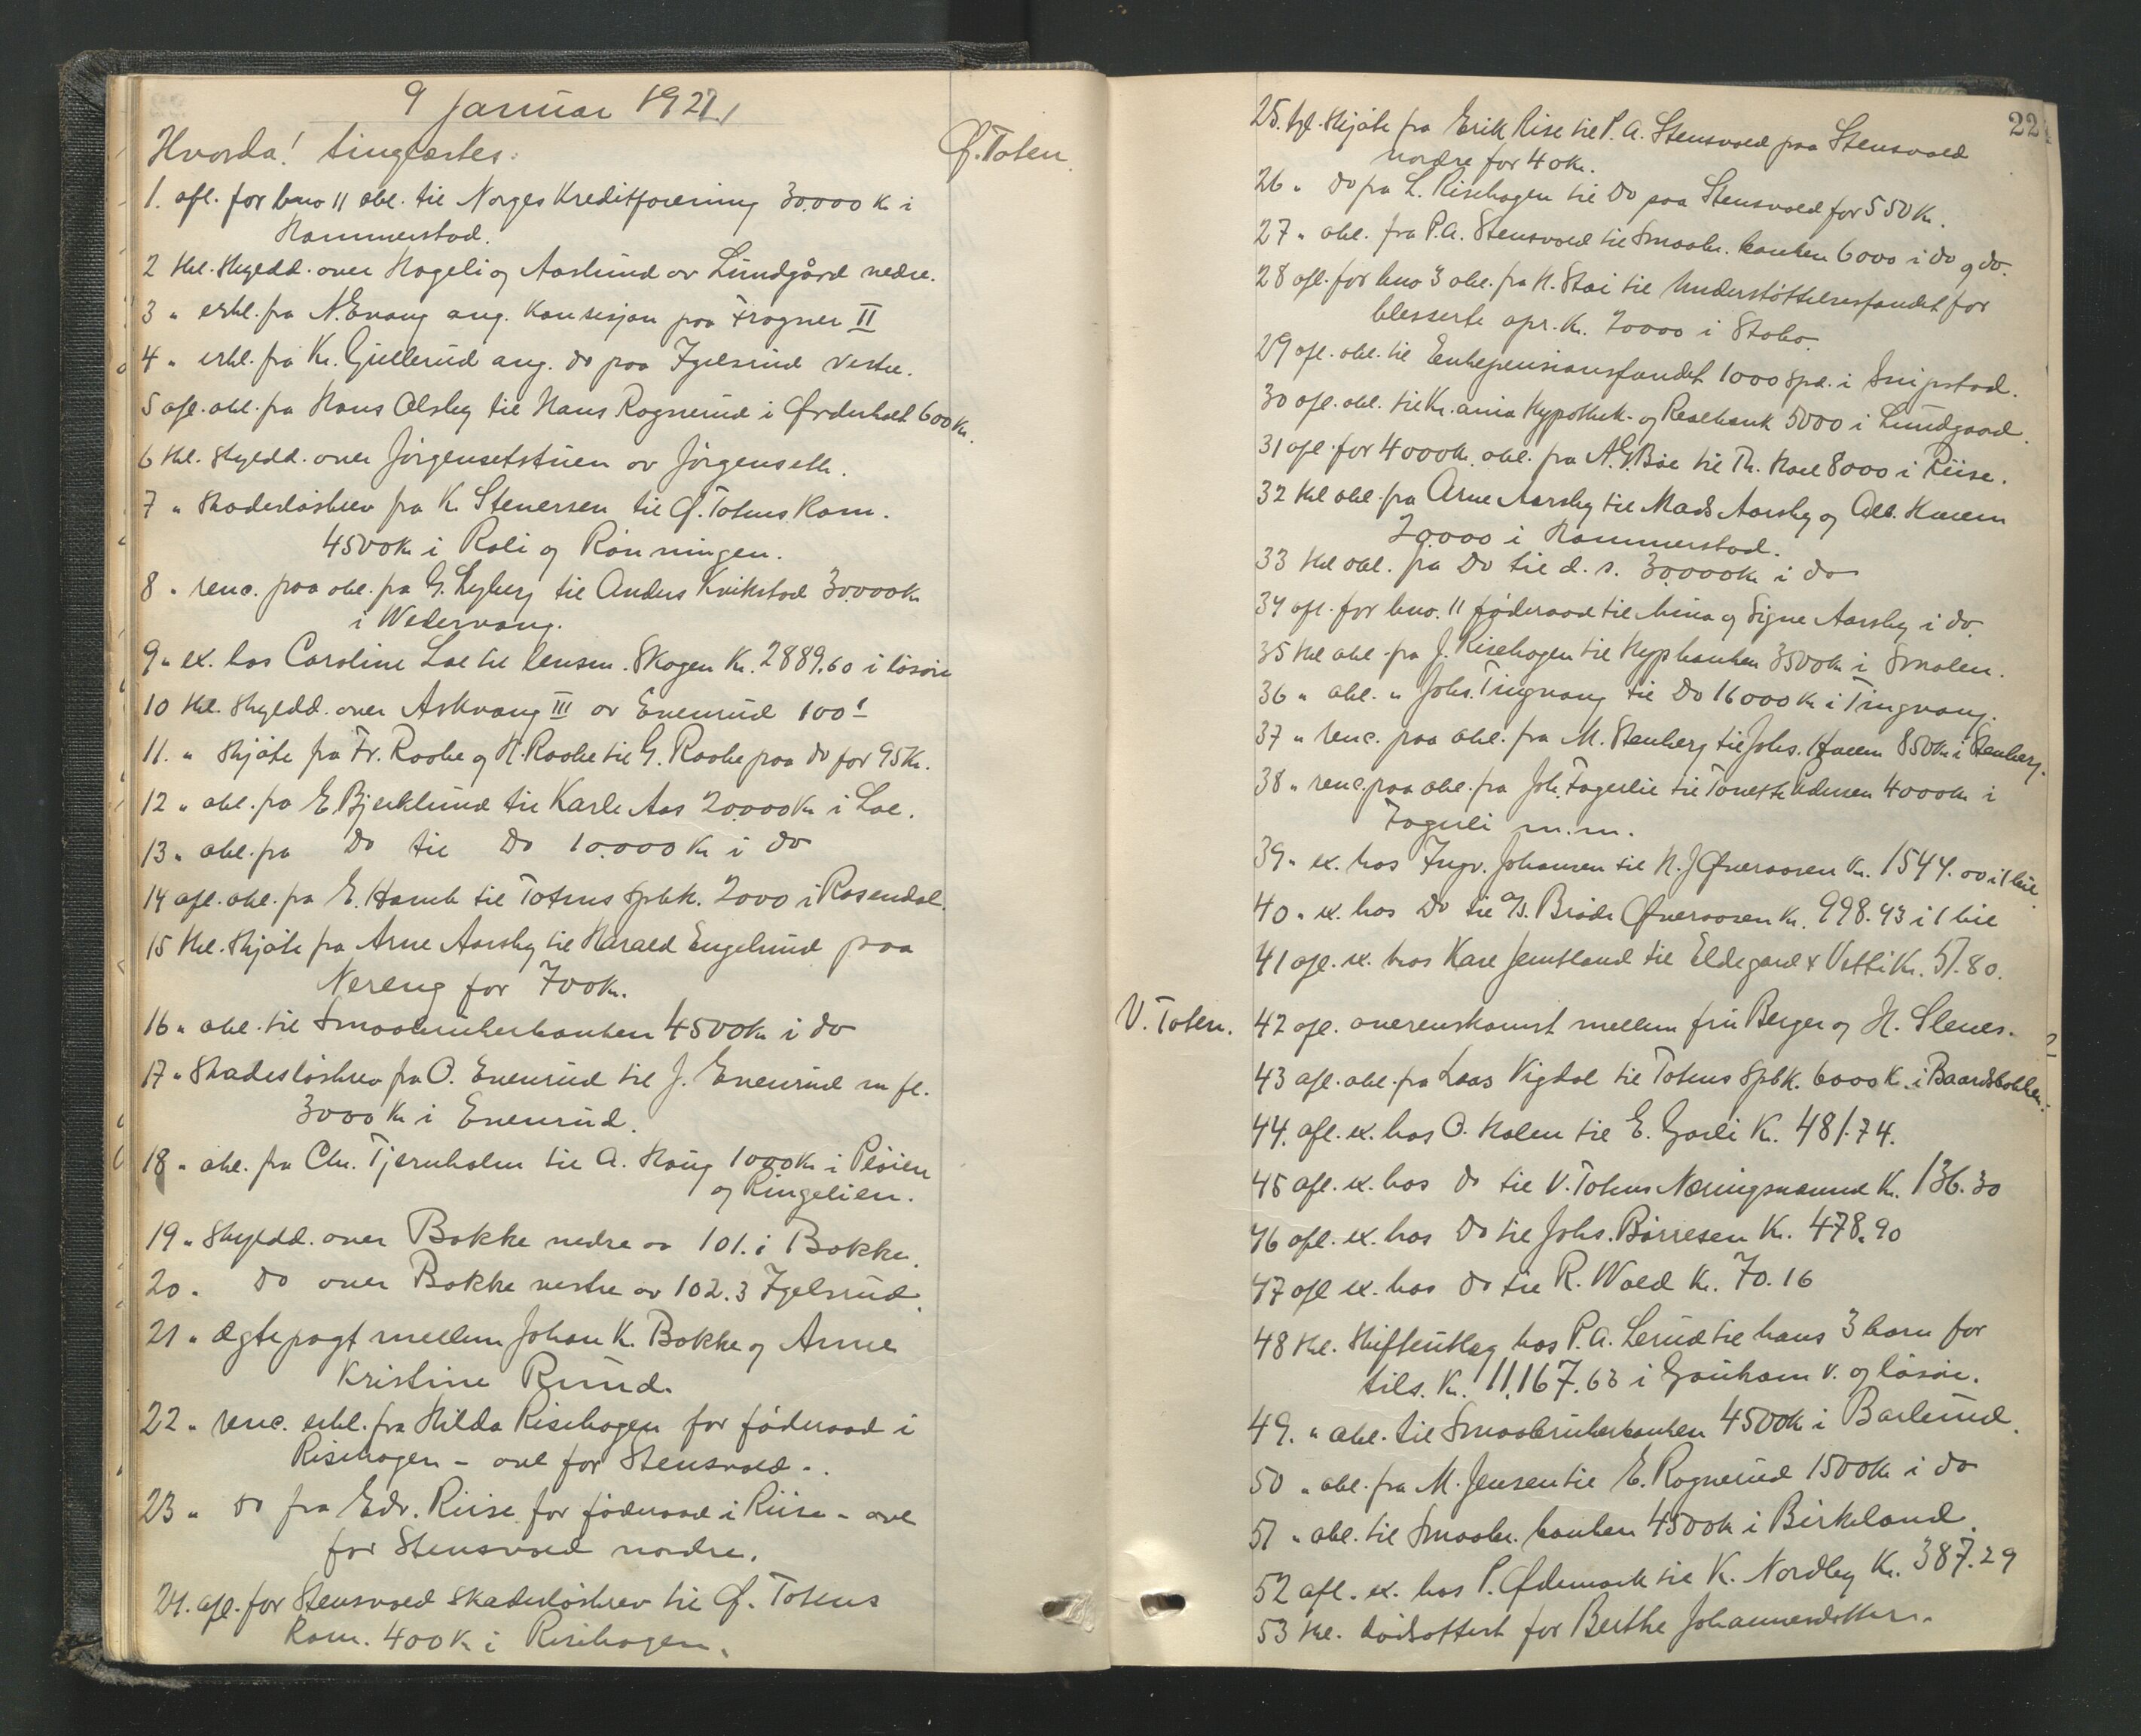 9 Januar 1922
Hvorda! tinglæstes:
Ø. Toten
1. afl. for bno 11 obl. til Norges Kreditforening 30.000 K i
Hammerstad.
2 tkl. skyldd. over Hageli og Aaslund av Lundgård nedre.
3 " erkl. fra N. Evang ang. konsesjon paa Frogner II
4 " erkl. fra Kr. Gullerud ang. do paa Igelsrud vestre.
5 afl. obl. fra Hans Alsby til Hans Rognerud i Ørderholt 600 Kr.
6 tkl. skyldd. over Jørgensetstuen av Jørgenseth.
7 " Skadesløsbrev fra K. Stenersen til Ø. Totens kom.
4500 Kr i Roli og Rønningen.
8 " renc. paa obl. fra G. Lyberg til Anders Kvikstad 30.000 Kr
i Wedervang.
9 " ex. hos Caroline Loe til lensm. Skogen Kr. 2889.60 i løsøre
10 tkl. skyldd. over Askvang III av Evenrud 100.1
11. " Skjøte fra Fr. Raabe og H. Raabe til G. Raabe paa do for 95 Kr.
12 " obl. fra E. Bjerklund til Karle Aas 20.000 Kr i Loe.
13 " obl. fra Do til Do 10.000 Kr i do
14 afl. obl. fra E. Homb til Totens Spbk. 2000 i Rosendal.
15 tkl. Skjøte fra Arne Aarsby til Harald Engelund paa
Nereng for 700 Kr.
16 " obl. til Smaabrukerbanken 4500 Kr i do
17 " Skadesløsbrev fra O. Evenrud til J. Evenrud m fl.
3000 Kr i Evenrud.
18 " obl. fra Chr. Tjernholm til A. Haug 1000 Kr i Pløien
og Ringelien.
19 " Skyldd. over Bakke nedre av 101.1 Bakke.
20 " do over Bakke vestre av 102.3 Igelsrud.
21 " Ægtepagt mellem Johan K. Bakke og Anne
Kristine Rund.
22 " renc. erkl. fra Hilda Risehagen for føderaad i
Risehagen - avl for Stensvold -.
23 " do fra Edv. Riise for føderaad i Riise - avl
for Stensvold nordre.
24. afl. for Stensvold skadesløsbrev til Ø. Totens
kom. 400 K i Risehagen.
22
25. tkl. Skjøte fra Erik Rise til P. A. Stensvold paa Stensvold
nordre for 40 Kr.
26 " Do fra L. Risehagen til Do paa Stensvold for 550 Kr.
27 " obl. fra P. A. Stensvold til Smaabr. banken 6000 i do og do.
28 afl. for bno 3 obl. fra H. Stai til Understøttelsesfondet for
blesserte opr. Kr. 20000 i Stabo.
29 afl. obl. til Enkepensionsfondet 1000 Spd. i Snipstad.
30 afl. obl. til Kr.ania Hypothek- og Realbank 5000 i Lundgaard.
31 afl. for 4000 Kr. obl. fra A. G. Bøe til Th. Hoel 8000 i Riise.
32 tkl obl. fra Arne Aarsby til Mads Aarsby og Alb. Hveem
20.000 i Hammerstad.
33 tkl obl. fra Do til d. s. 30.000 Kr i do
34 afl. for bno. 11 føderaad til Mina og Signe Aarsby i do.
35 tkl obl. fra J. Risehagen til Hypbanken 3500 Kr i Smalen.
36 " obl. " Johs. Tingvang til Do 16000 Kr i Tingvang.
37 " renc. paa obl. fra M. Stenberg til Johs. Hveem 850 Kr i Stenberg.
38 " renc. paa obl. fra Joh. Fagerlie til Tonette Pedersen 4000 Kr i
Fagerli m.m.
39 " ex. hos Ingv. Johansen til N. J. Øveraasen Kr. 1544.00 i 1 bil.
40 " ex. hos Do til A/S. Brødr. Øveraasen Kr. 998.43 i 1 bil
41 afl. ex. hos Karl Jemtland til Eldegard & Vetti Kr. 51.80.
V. Toten.
42 afl. overenskomst mellem fru Berger og H. Slenes.
43 afl. obl. fra Lars Vigdal til Totens Spbk. 6000 K. i Baardsbakken.
44. afl. ex. hos O. Holen til E. Garli Kr. 481.74.
45 afl. ex. hos do til V. Totens Næringsnævnd Kr. 136.30
46 afl. ex. hos Do til Johs. Børresen Kr. 478.90
47 afl ex. hos do til R. Wold Kr. 70.16
48 tkl. Skifteutlæg hos P. A. Lerud til hans 3 barn for
tils. Kr. 11,167.63 i Gauham v. og løsøre.
49. " obl. til Smaabrukerbanken 4500 Kr i Barlund.
50 " obl. fra M. Jensen til E. Rognerud 1500 Kr i do
51 " obl. til Smaabr. banken 4500 Kr i Birkeland.
52 afl. ex. hos P. Ødemark til K. Nordby Kr. 387.29
53 tkl. dødsattest for Berthe Johannesdatter.